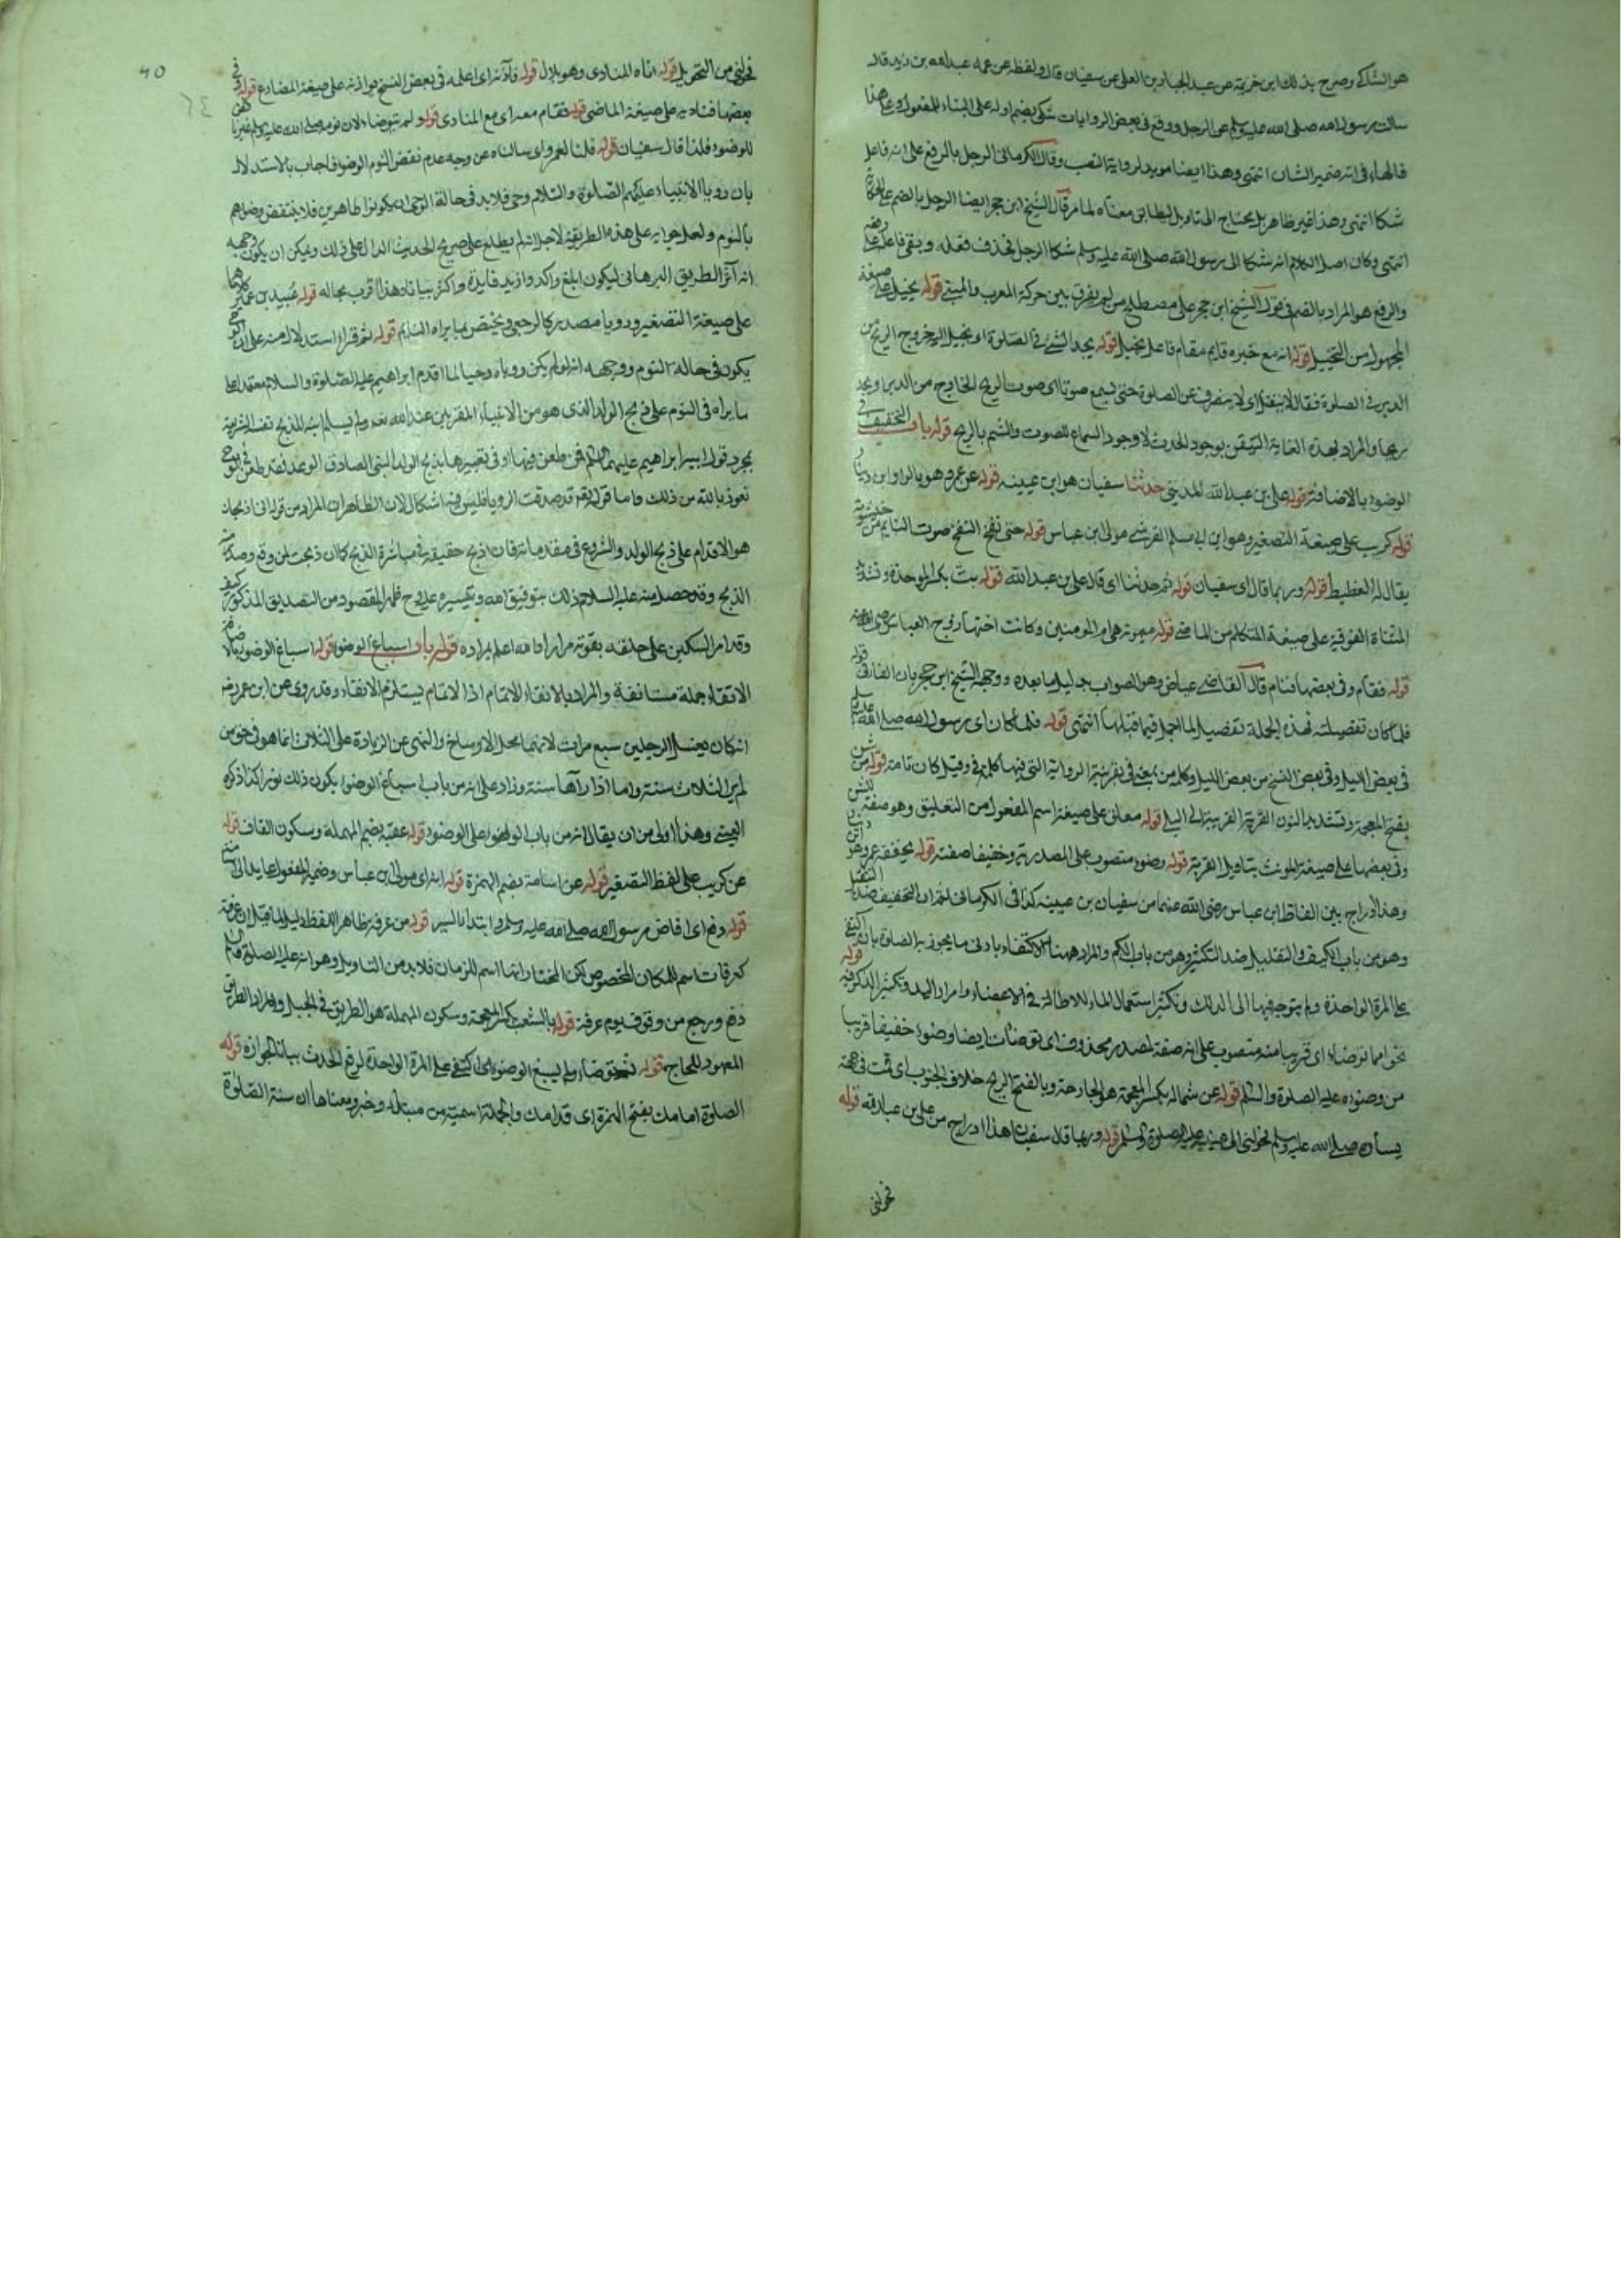 هو الشاكي وصرح بذلك ابن خزيمة عن عبد الجبار بن العلى عن سفيان قال ولفظه عن عمه عبد الله بن زيد قال
سالت رسول الله صلى الله عليه وسلم عن الرجل ووقع في بعض الروايات شكى بضم اوله على البناء للمفعول وعلى هذا
فالهاء في انه ضمير الشان انتهى وهذا ايضا مويد لرواية النصب وقال الكرماني الرجل بالرفع على انه فاعل
شكا انتهى وهذا غير ظاهر بل يحتاج الى تاويل ليطابق معناه لما مر قال الشيخ ابن حجر ايضا الرجل بالضم على الحكاية
انتهى وكان اصل الكلام انه شكا الى رسول الله صلى الله عليه وسلم شكا الرجل فحذف فعله وبقي فاعله على رفعه
والرفع هو المراد بالضم في قول الشيخ ابن حجر على مصطلح من لم يفرق بين حركة المعرب والمبني قوله يخيل على صيغة
المجهول من التخييل قوله انه مع خبره قايم مقام فاعل يخيل قوله يجد الشيء في الصلوة اي يخيل اليه خروج الريح من
الدبر في الصلوة فقال لا ينفتل اي لا ينصرف عن الصلوة حتى يسمع صوتا اي صوت الريح الخارج من الدبر او يجد
ريحا والمراد بهذه الغاية التيقن بوجود الحدث لا وجود السماع للصوت والشم بالريح قوله باب التخفيف في
الوضوء بالاضافة قوله علي بن عبد الله المديني حدثنا سفيان هو ابن عيينه قوله عن عمرو هو بالواو ابن دينار
قوله كريب على صيغة التصغير وهو ابن ابي مسلم القرشي مولى ابن عباس قوله حتى نفخ النفخ صوت النايم من خيشومه
يقال له الغطيط قوله وربما قال اي سفيان قوله ثم حدثنا اي قال علي بن عبد الله قوله بت بكسر الموحدة وتشديد
المثناة الفوقية على صيغة المتكلم من الماضي قوله ميمونة هي ام المومنين وكانت اختها زوج العباس رضي الله عنه
قوله فقام وفي بعضها فنام قال القاضي عياض وهو الصواب بدليل ما بعده ووجهه الشيخ ابن حجر بان الفا في قوله
فلما كان تفصيلية فهذه الجملة تفصيل لما اجمل فيما قبلها انتهى قوله فلما كان اي رسول الله صلى الله عليه وسلم
في بعض الليل وفي بعض النسخ من بعض الليل وكلمة من بمعنى في بقرينة الرواية التي فيها كلمة في وقيل كان تامة قوله من شن
بفتح المعجمة وتشديد النون القربة القريبة الى البلى قوله معلق على صيغة اسم المفعول من التعليق وهو صفة للشن
وفي بعضها على صيغة المونث بتاويل القربة قوله وضوء منصوب على المصدرية وخفيفا صفته قوله يخففه عمرو هو ابن دينار
وهذا ادراج بين الفاظ ابن عباس رضي الله عنهما من سفيان بن عيينه كذا في الكرماني ثم ان التخفيف ضد التثقيل
وهو من باب الكيف والتقليل ضد التكثير وهو من باب الكم والمراد ههنا الاكتفاء بادنى ما يجوز به الصلاة بان اكتفى
على المرة الواحدة ولم يتوجه فيها الى الدلك وتكثير استعمال الماء للاطالة في الاعضاء وامرار اليد وتكثير الدلك فيه قوله
نحوا مما توضاء اي قريبا منه منصوب على انه صفة لمصدر محذوف اي توضات ايضا وضوء خفيفا قريبا
من وضوءه عليه الصلوة والسلم قوله عن شماله بكسر المعجمة هو الجارحة وبالفتح الريح خلاف الجنوب اي قمت في جهة
يساره صلى الله عليه وسلم فحولني الى يمينه عليه الصلوة والسلم قوله وربما قال سفيان هذا ادراج من علي بن عبد الله قوله
فحولني
40
٦٤
فحولني من التحويل قوله اتاه المنادي وهو بلال قوله فاذنه اي اعلمه في بعض النسخ يواذنه على صيغة المضارع قوله وفي
بعضها فناديه على صيغة الماضي قوله فقام معه اي مع المنادي قوله ولم يتوضاء لان نومه صلى الله عليه وسلم غير ناقض
للوضوء فلذا قال سفيان قوله قلنا لعمرو اي سالناه عن وجه عدم نقض النوم الوضوء فاجاب بالاستدلال
بان رويا الانبياء عليهم الصلوة والسلام وحي فلابد في حالة الوحي ان يكونوا طاهرين فلا ينتقض وضوءهم
بالنوم ولعل جوابه على هذه الطريقة لاجل انه لم يطلع على صريح الحديث الدال على ذلك ويمكن ان يكون وجهه
انه آثر الطريق البرهاني ليكون ابلغ واكد وازيد فايدة واكثر بيانا وهذا اقرب بحاله قوله عبيد بن عمير كلاهما
على صيغة التصغير ورويا مصدر كالرجعى ويختص بما يراه النايم قوله ثم قراء استدلالا منه على ان الوحي
يكون في حالة النوم ووجهه انه لو لم يكن روياه وحيا لما اقدم ابراهيم عليه الصلوة والسلام معتمدا على
ما يراه في النوم على ذبح الولد الذي هو من الانبياء المقربين عند الله تعالى ولم يسلم ابنه للذبح نفسه الشريفة
بمجرد قول ابيه ابراهيم عليهما السلم فمن طعن فيها او في تعبيرها بذبح الولد النبي الصادق الوعد فقد طعن في الوحي
نعوذ بالله من ذلك واما قوله تعالى قد صدقت الرويا فليس فيه اشكال لان الظاهر ان المراد من قوله اني اذبحك
هو الاقدام على ذبح الولد والشروع في مقدماته فان اذبح حقيقة في مباشرة الذبح كما ان ذبحت لمن وقع وصدر منه
الذبح وقد حصل منه عليه السلام ذلك بتوفيق الله وتيسيره عليه فظهر المقصود من التصديق المذكور كيف
وقد امر السكين على حلقه بقوته مرارا والله اعلم بمراده قوله باب اسباغ الوضوء قوله اسباغ الوضوء
الانقاء جملة مستانفة والمراد بالانقاء الاتمام اذ الاتمام يستلزم الانقاء وقد روى عن ابن عمر رضي
انه كان يغسل الرجلين سبع مرات لانهما محل الاوساخ والنهي عن الزيادة على الثلاث انما هو في حق من
لم ير الثلاث سنة واما اذا رآها سنة وزاد على انه من باب اسباغ الوضوء يكون ذلك نورا كذا ذكره
العيني وهذا اولى من ان يقال انه من باب الوضوء على الوضوء قوله عقبة بضم المهملة وسكون القاف قوله
عن كريب على لفظ التصغير قوله عن اسامة بضم الهمزة قوله انه اي مولى ابن عباس وضمير المفعول عايد الى
قوله دفع اي افاض رسول الله صلى الله عليه وسلم وابتدا بالسير قوله من عرفة بظاهر اللفظ دليل لما قيل ان عرفة
كعرفات اسم للمكان المخصوص لكن المختار انها اسم للزمان فلابد من التاويل وهو انه عليه الصلوة
دفع ورجع من وقوف يوم عرفة قوله بالشعب بكسر المعجمة وسكون المهملة هو الطريق في الجبل والمراد الطريق
المعهود للحاج قوله ثم توضاء ولم يسبغ الوضوء اي اكتفى على المرة الواحدة لرفع الحدث بيانا لجوازه قوله
الصلوة امامك بفتح الهمزة اي قدامك والجملة اسمية من مبتداء وخبر ومعناها ان سنة الصلوة